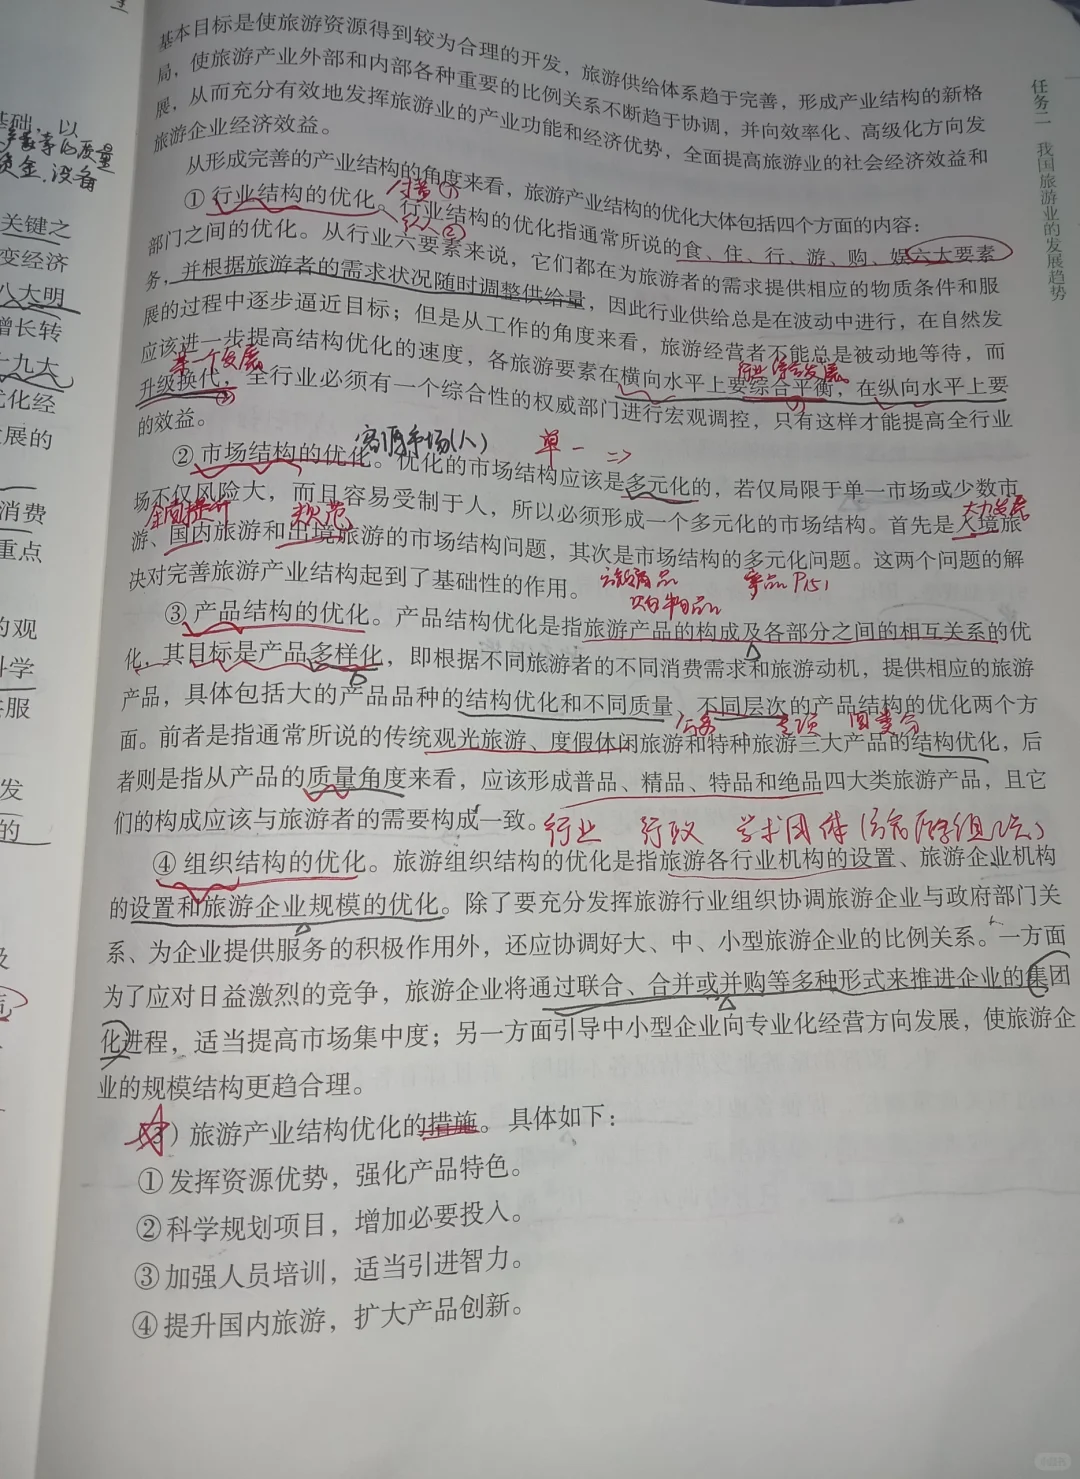 基本目标是使旅游资源得到较为合理的开发，旅游供给体系趋于完善，形成产业结构的新格
局，使旅游产业外部和内部各种重要的比例关系不断趋于协调，并向效率化、高级化方向发
展，从而充分有效地发挥旅游业的产业功能和经济优势，全面提高旅游业的社会经济效益和
旅游企业经济效益。
从形成完善的产业结构的角度来看，旅游产业结构的优化大体包括四个方面的内容：
①行业结构的优化。行业结构的优化指通常所说的食、住、行、游、购、娱六大要素
部门之间的优化。从行业六要素来说，它们都在为旅游者的需求提供相应的物质条件和服
务，并根据旅游者的需求状况随时调整供给量，因此行业供给总是在波动中进行，在自然发
展的过程中逐步逼近目标；但是从工作的角度来看，旅游经营者不能总是被动地等待，而
应该进一步提高结构优化的速度，各旅游要素在横向水平上要综合平衡，在纵向水平上要
升级换代，全行业必须有一个综合性的权威部门进行宏观调控，只有这样才能提高全行业
的效益。
客源市场(人)
单一
②市场结构的优化。优化的市场结构应该是多元化的，若仅局限于单一市场或少数市
场不仅风险大，而且容易受制于人，所以必须形成一个多元化的市场结构。首先是入境旅
全面提升
规范
大力发展
游、国内旅游和出境旅游的市场结构问题，其次是市场结构的多元化问题。这两个问题的解
决对完善旅游产业结构起到了基础性的作用。
③产品结构的优化。产品结构优化是指旅游产品的构成及各部分之间的相互关系的优
化，其目标是产品多样化，即根据不同旅游者的不同消费需求和旅游动机，提供相应的旅游
产品，具体包括大的产品品种的结构优化和不同质量、不同层次的产品结构的优化两个方
面。前者是指通常所说的传统观光旅游、度假休闲旅游和特种旅游三大产品的结构优化，后
者则是指从产品的质量角度来看，应该形成普品、精品、特品和绝品四大类旅游产品，且它
们的构成应该与旅游者的需要构成一致。
行业 行政 学术团体
④组织结构的优化。旅游组织结构的优化是指旅游各行业机构的设置、旅游企业机构
的设置和旅游企业规模的优化。除了要充分发挥旅游行业组织协调旅游企业与政府部门关
系、为企业提供服务的积极作用外，还应协调好大、中、小型旅游企业的比例关系。一方面
为了应对日益激烈的竞争，旅游企业将通过联合、合并或并购等多种形式来推进企业的集团
化进程，适当提高市场集中度；另一方面引导中小型企业向专业化经营方向发展，使旅游企
业的规模结构更趋合理。
3）旅游产业结构优化的措施。具体如下：
①发挥资源优势，强化产品特色。
②科学规划项目，增加必要投入。
③加强人员培训，适当引进智力。
④提升国内旅游，扩大产品创新。
任务二 我国旅游业的发展趋势
基础，以
资金、设备
关键之
变经济
八大明
增长转
十九大
优化经
发展的
消费
重点
的观
科学
服
发
的